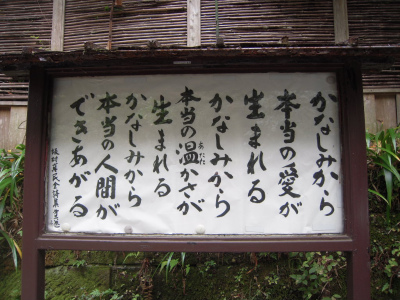 かなしみから
本当の愛が
生まれる
かなしみから
本当の温かさが
あたた
生まれる
かなしみから
本当の人間が
できあがる